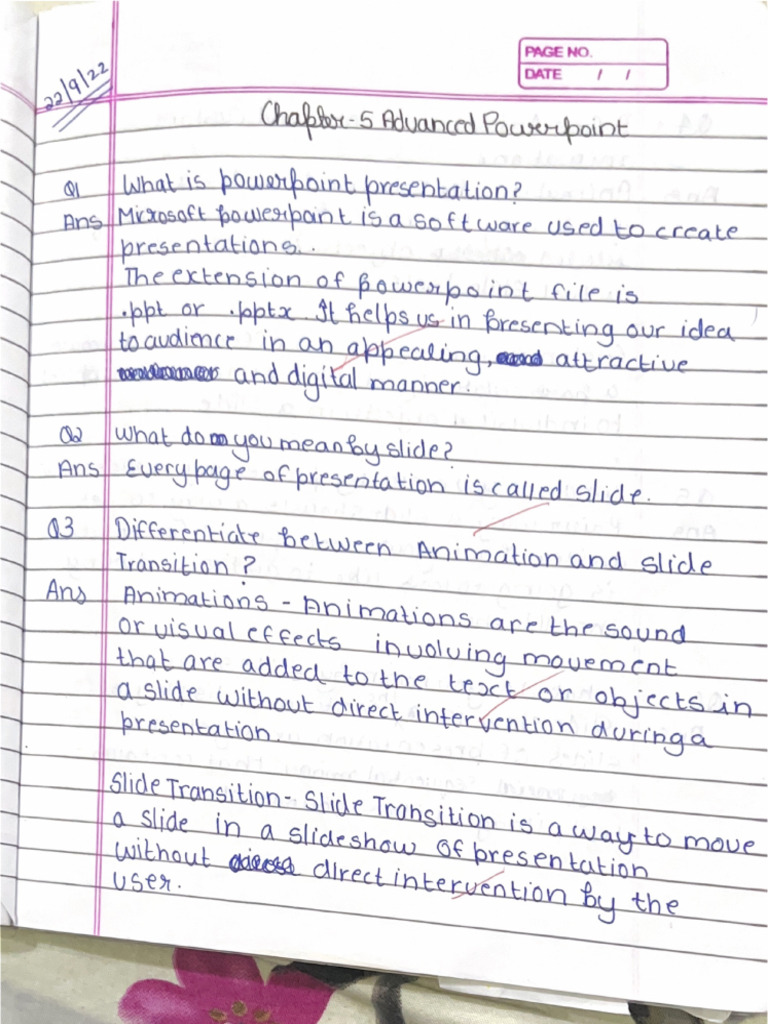 PAGE NO.
DATE / /
22/9/22
Chapter-5 Advanced Powerpoint
Q1 What is powerpoint presentation?
Ans Microsoft powerpoint is a software used to create
presentations..
The extension of powerpoint file is
.ppt or .pptx It helps us in presenting our idea
to audience in an appealing, attractive
and digital manner.
Q2 What do you mean by slide?
Ans Every page of presentation is called slide.
Q3 Differentiate between Animation and slide
Transition?
Ans Animations - Animations are the sound
or visual effects involving movement
that are added to the text or objects in
a slide without direct intervention during a
presentation.
Slide Transition - Slide Transition is a way to move
a slide in a slideshow of presentation
without direct intervention by the
user.